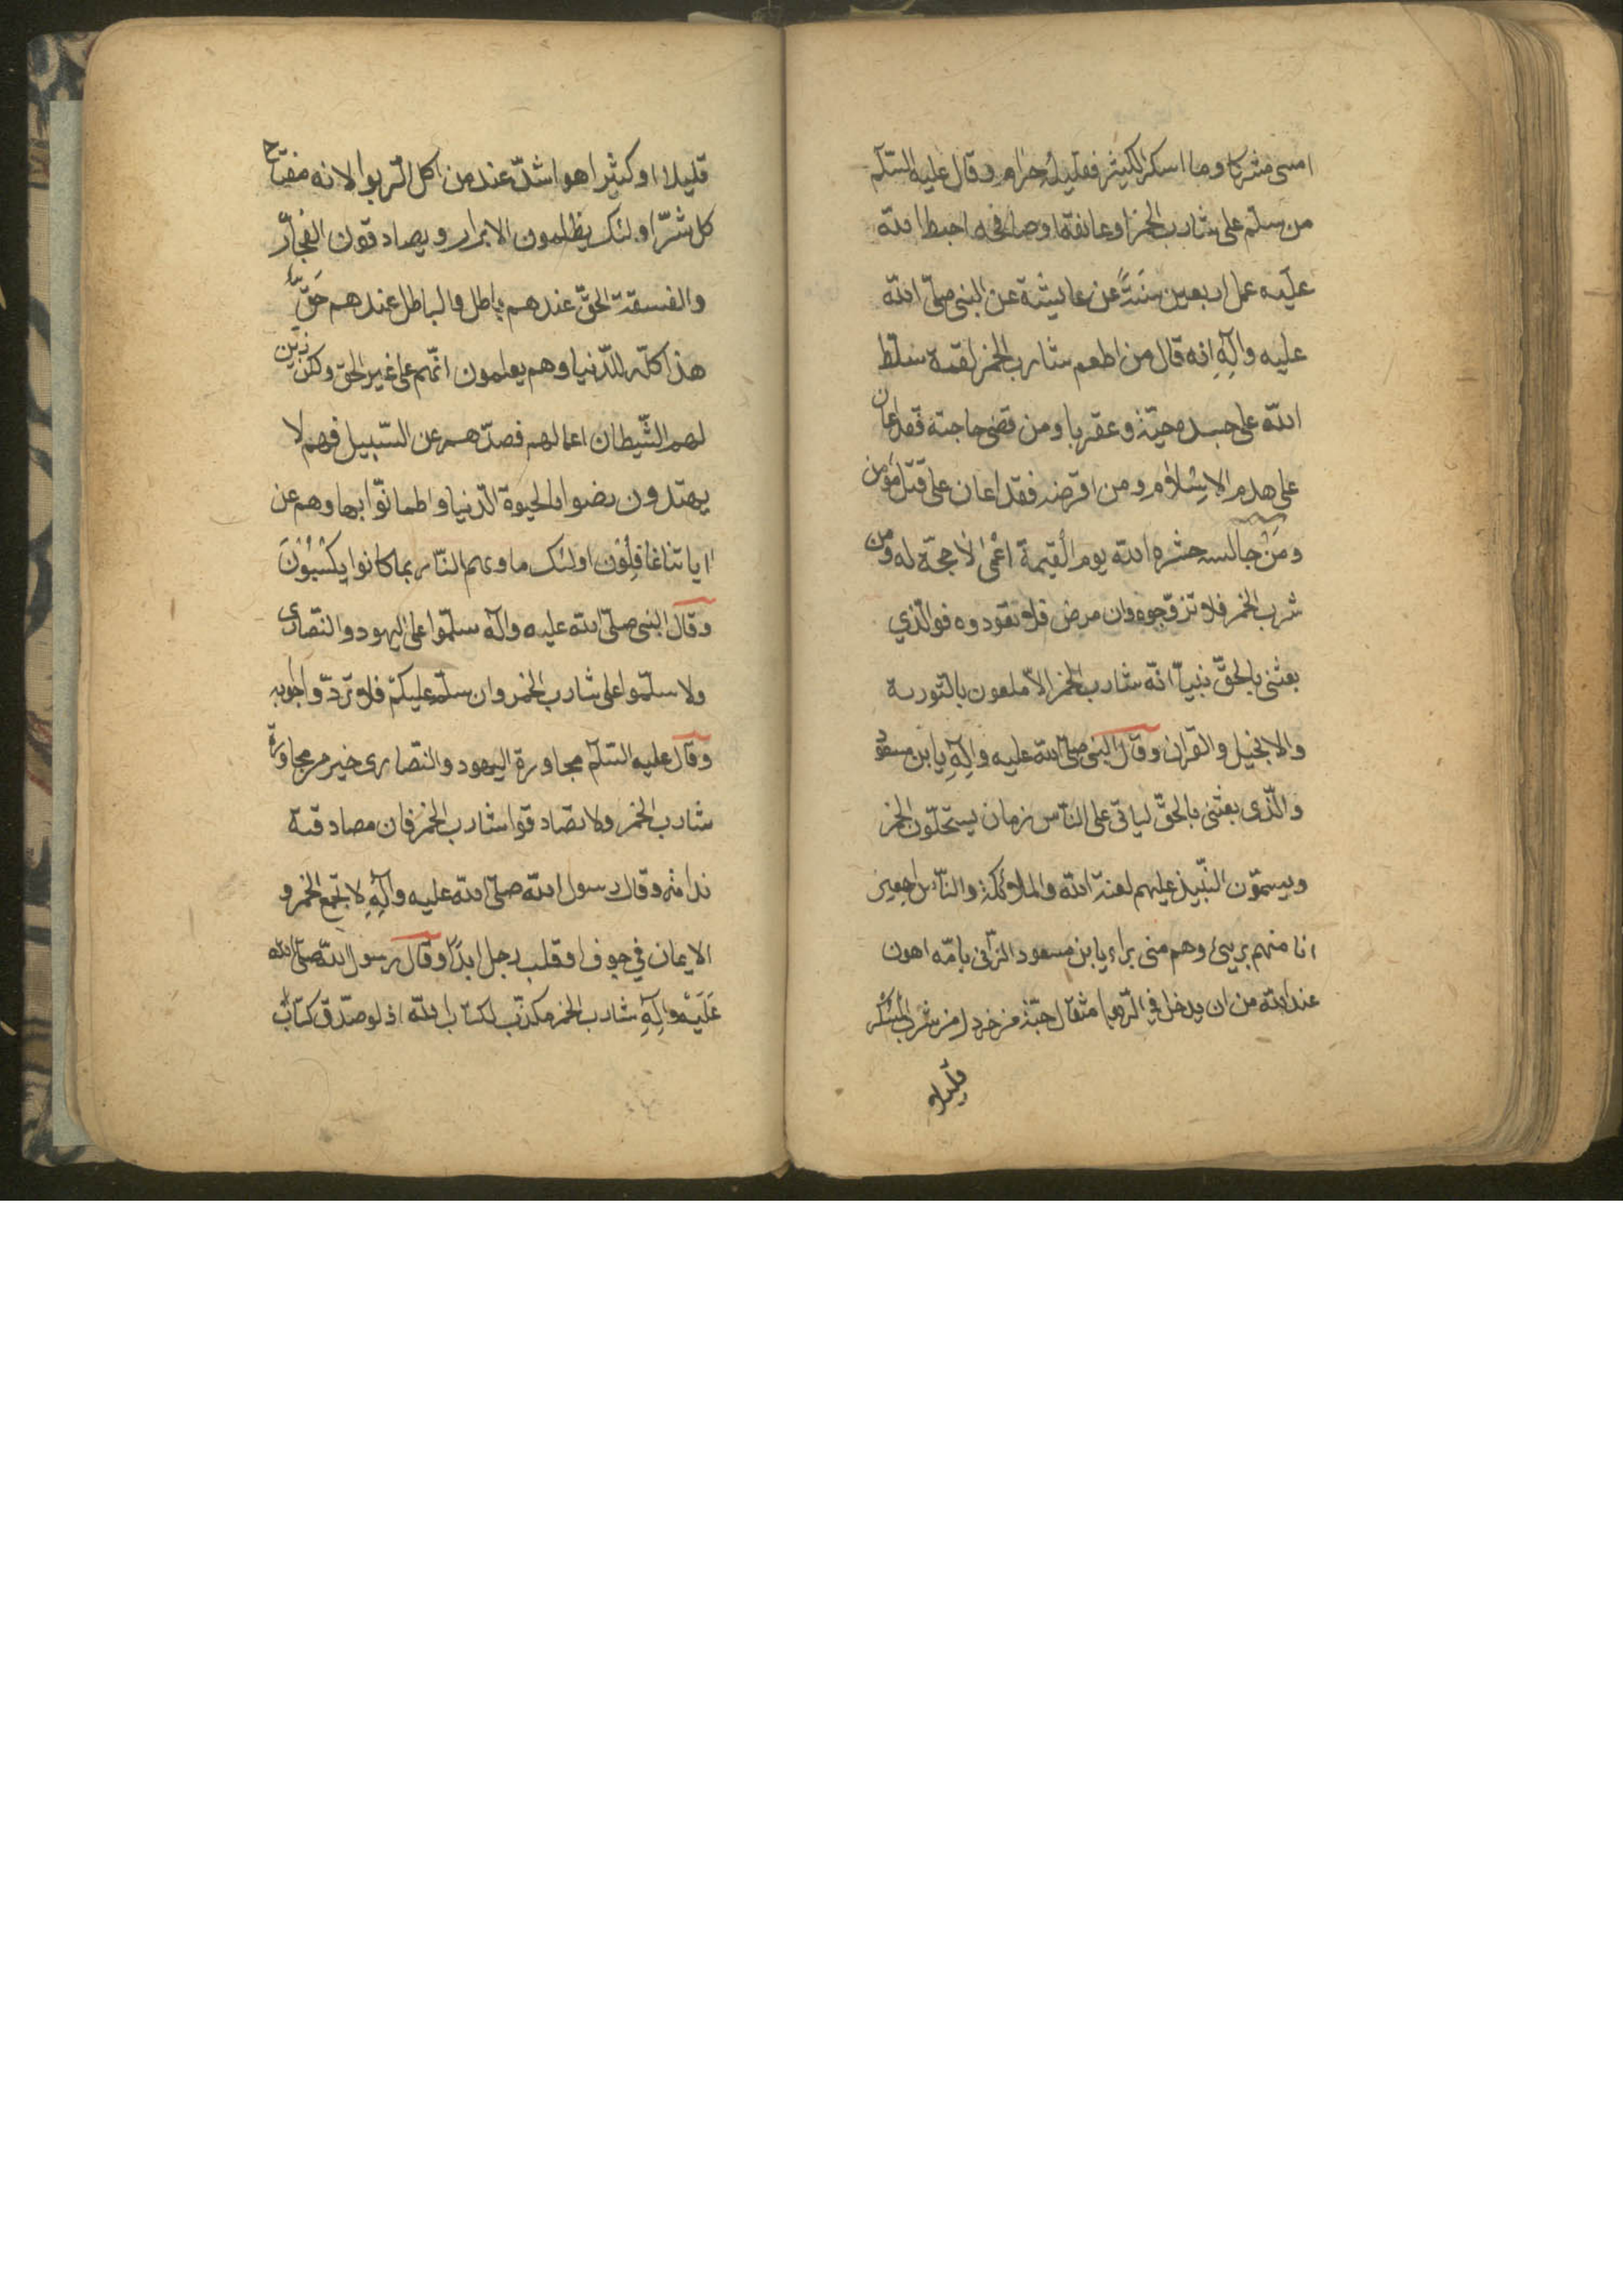 امسى مشركا وما اسكر الكثير فقليله حرام وقال عليه السّلم
من سلّم على شارب الخمر او عانقه او صافحه احبط الله
عليه عمل اربعين سَنَةً عن عايشة عن النبى صلّى الله
عليه وآلِهِ انه قال من اطعم شارب الخمر لقمة سلّط
الله على جسده حيّة وعقربا ومن قضى حاجته فقد اعان
على هدم الاسلام ومن اقرضه فقد اعان على قتل مؤمن
ومَنْ جالسه حشره الله يوم القيمة اعْمىٰ لا حجّة له ومن
شرب الخمر فلا تزوّجوه وان مرض فلا تعودوه فوالّذي
بعثنى بالحقّ نبيّا انّه شارب الخمر الّا ملعون بالتّورية
والانجيل والقران وقال النبى صلّى الله عليه وآلِهِ يا بن مسعود
والّذى بعثنى بالحقّ لياتى على النّاس زمان يستحلّون الخمر
ويسمّون النّبيذ عليهم لعنة الله والملائكة والنّاس اجمعين
انا منهم بريئ وهم منى براء يا بن مسعود الزّانى بامّه اهون
عند الله من ان يدخل فى الرّبوا مثقال حبّة من خردل من شرب المُسْكر
قليلا
قليلا او كثيرا هو اشدّ عند من اكل الرّبوا لانه مفتاح
كل شرّ اولئك يظلمون الابرار ويصادقون الفجّار
والفسقة الحقّ عندهم باطل والباطل عندهم حَقّ
هذا كلّه للدّنيا وهم يعلمون انّهم على غير الحق ولكن زيّن
لهم الشّيطان اعمالهم فصدّهم عن السّبيل فهم لا
يهتدون رضوا بالحيوة الدّنيا واطمانّوا بها وهم عن
اياتنا غافِلُوْن اولئك ماويهم النّار بما كانوا يَكْسِبُوْنَ
وقال النبى صلّى الله عليه وآله سلّموا على اليهود والنّصارى
ولا سلّموا على شارب الخمر وان سلّم عليكم فلا تردّوا جوابه
وقال عليه السّلم مجاورة اليهود والنّصارى خير من مجاورة
شارب الخمر ولا تصادقوا شارب الخمر فان مصادقته
ندامة وقال رسول الله صلّى الله عليه وآلِهِ لا تجمع الخمر و
الايمان فى جوف او قلب رجل ابدًا وقال رسول الله صلّى الله
عَلَيْه وآلِهِ شارب الخمر مكذّب لكتاب الله اذ لو صدّق كتاب